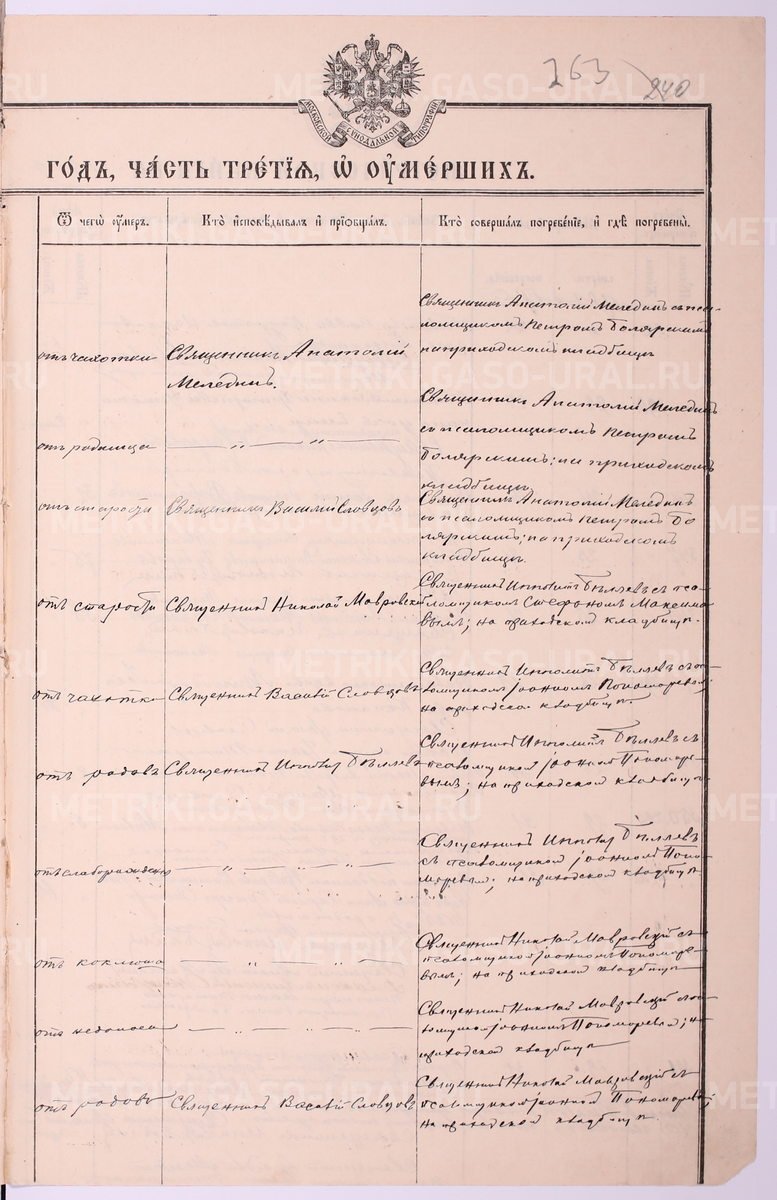 263
240
МОСКОВСКОЙ СѴНОДАЛЬНОЙ ТИПОГРАФІИ
го́дъ, ча́сть тре́тїѧ, ѡ҆ ᲂу҆ме́ршихъ.
Ѿ чегѡ̀ ᲂу҆́меръ.
Кто̀ и҆сповѣ́дывалъ и҆ прїѡбща́лъ.
Кто̀ соверша́лъ погребе́нїе, и҆ гдѣ̀ погребены̀.
отъ чахотки
Священникъ Анатолій
Мелединъ.
Священникъ Анатолій Мелединъ съ пса-
ломщикомъ Петромъ Болярскимъ
на приходскомъ кладбищѣ
отъ родимца
— „ — „ —
Священникъ Анатолій Мелединъ
съ псаломщикомъ Петромъ
Болярскимъ; на приходскомъ
кладбищѣ
отъ старости
Священникъ Василій Словцовъ
Священникъ Анатолій Мелединъ
съ псаломщикомъ Петромъ Бо
лярскимъ; на приходскомъ
кладбищѣ.
отъ старости
Священникъ Николай Мавровскій
Священникъ Ипполитъ Бѣляевъ съ пса-
ломщикомъ Стефаномъ Максимо
вымъ; на приходскомъ кладбищѣ.
отъ чахотки
Священникъ Василій Словцовъ
Священникъ Ипполитъ Бѣляевъ съ пса-
ломщикомъ Іоанномъ Пономаревымъ;
на приходскомъ кладбищѣ.
отъ родовъ
Священникъ Ипполитъ Бѣляевъ
Священникъ Ипполитъ Бѣляевъ съ
псаломщикомъ Іоанномъ Пономаре-
вымъ; на приходскомъ кладбищѣ
отъ слаборожденія
— „ — „ — „ —
Священникъ Ипполитъ Бѣляевъ
съ псаломщикомъ Іоанномъ Поно-
маревымъ; на приходскомъ кладбищѣ
отъ коклюша
— „ — „ — „ —
Священникъ Николай Мавровскій съ
псаломщикомъ Іоанномъ Пономаре-
вымъ; на приходскомъ кладбищѣ
отъ недоноса
— „ — „ — „ —
Священникъ Николай Мавровскій съ пса-
ломщикомъ Іоанномъ Пономаревымъ; на
приходскомъ кладбищѣ
отъ родовъ
Священникъ Василій Словцовъ
Священникъ Николай Мавровскій съ
псаломщикомъ Іоанномъ Пономаревымъ;
на приходскомъ кладбищѣ.
METRIKI.GASO-URAL.RU